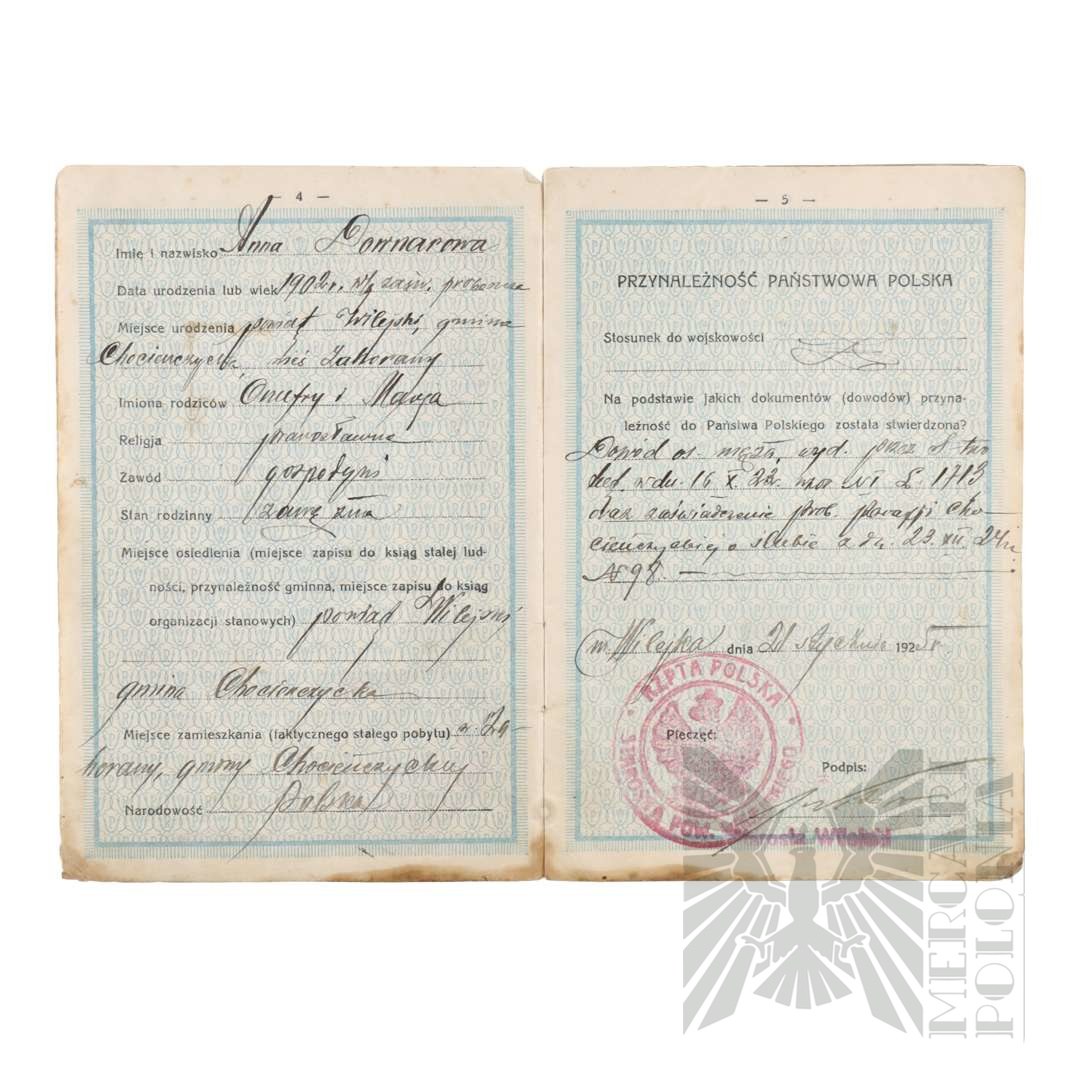 — 4 —
Imię i nazwisko Anna Downarowa
Data urodzenia lub wiek 1902 r. wg zaśw. proboszcza
Miejsce urodzenia powiat Wilejski, gmina
Chocieńczycka, wieś
Imiona rodziców Onufry i Marja
Religja prawosławna
Zawód gospodyni
Stan rodzinny zamężna
Miejsce osiedlenia (miejsce zapisu do ksiąg stałej lud-
ności, przynależność gminna, miejsce zapisu do ksiąg
organizacji stanowych) powiat Wilejski
gmina Chocieńczycka
Miejsce zamieszkania (faktycznego stałego pobytu)
gminy Chocieńczyckiej
Narodowość Polska
— 5 —
PRZYNALEŻNOŚĆ PAŃSTWOWA POLSKA
Stosunek do wojskowości
Na podstawie jakich dokumentów (dowodów) przyna-
leżność do Państwa Polskiego została stwierdzona?
Dowód os. męża, wyd. przez
w dn. 16 X. 22. L. 1713
oraz zaświadczenie prob. parafji Cho
cieńczyckiej o ślubie z dn. 23. XII. 24 r.
N 98. —
m. Wilejka dnia 21 stycznia 1925 r.
RZPTA POLSKA
Pieczęć:
Podpis:
Starosta Wilejski
MERCARI
POLONIA